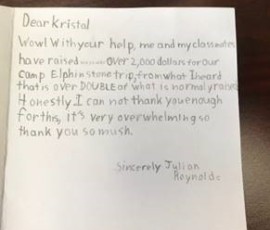 Dear Kristal
Wow! With your help, me and my classmates
have raised over 2,000 dollars for our
camp Elphinstone trip, from what I heard
that is over DOUBLE of what is normaly raised
Honestly I can not thank you enough
for this, it's very overwhelming so
thank you so mush.
Sincerely Julian
Reynolds